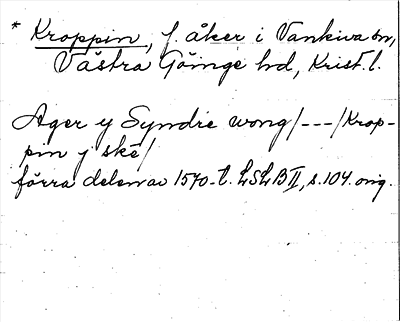 * Kroppin, f. åker i Vankiva sn,
Västra Göinge hd, Krist. l.
Ager y Syndre wong/---/Krop-
pin j ske/
förra delen av 1570-t. LSLB II, s. 104. orig.